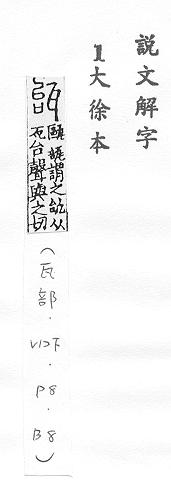 說文解字
1大徐本
瓵
甌瓿謂之瓵从
瓦台聲與之切
(瓦部.V12下.P8.B8)